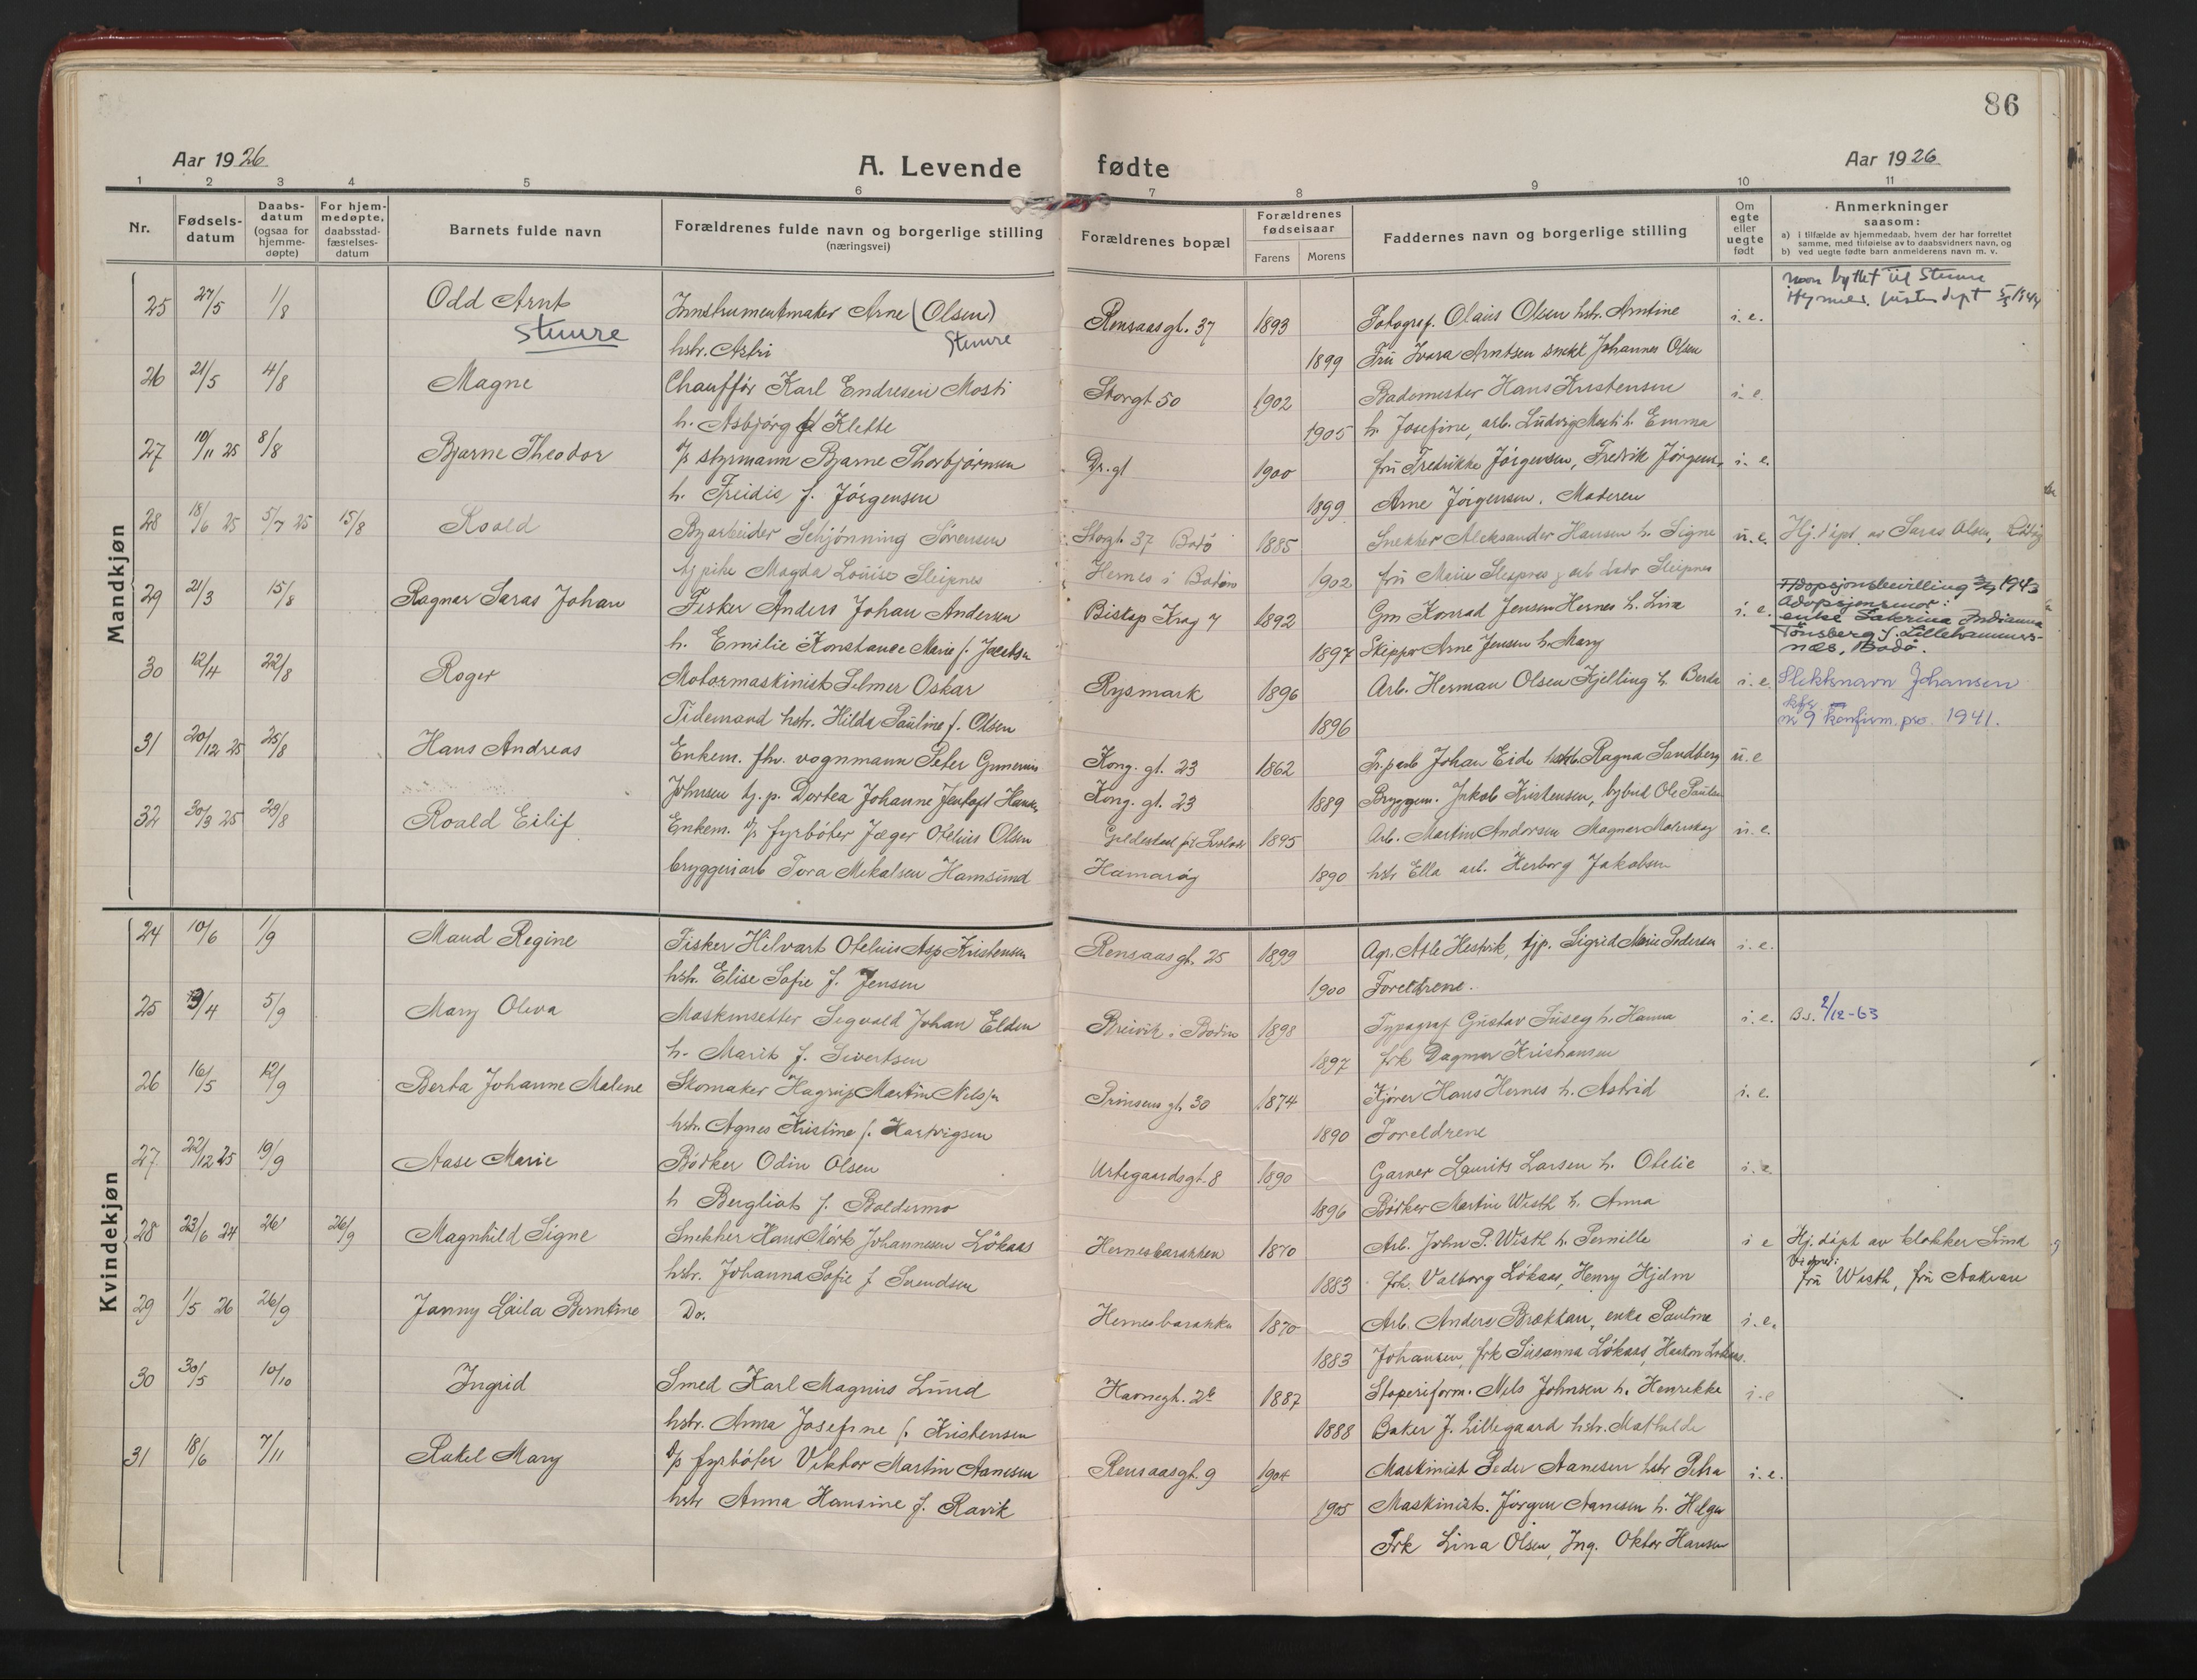 86
Aar 1926
A. Levende fødte
Aar 1926
1 2 3 4 5 6 7 8 9 10 11
Nr.
Fødsels-
datum
Daabs-
datum
(ogsaa for
hjemme-
døpte)
For hjem-
medøpte,
daabsstad-
fæstelses-
datum
Barnets fulde navn
Forældrenes fulde navn og borgerlige stilling
(næringsvei)
Forældrenes bopæl
Forældrenes
fødselsaar
Farens Morens
Faddernes navn og borgerlige stilling
Om
egte
eller
uegte
født
Anmerkninger
saasom:
a) i tilfælde av hjemmedaab, hvem der har forrettet
samme, med tilføielse av to daabsvidners navn, og
b) ved uegte fødte barn anmelderens navn m. v.
Mandkjøn
25 27/5 1/8 Odd Arnt Innstrumentmaker Arne (Olsen) Rensaasgt. 37 1893 Fotograf. Olaus Olsen hstr. Arntine i. e. navn byttet til Stuvre
Stuvre hstr. Astri Stuvre 1899 Fru Ivara Arntsen snekk Johannes Olsen
26 21/5 4/8 Magne Chauffør Karl Endresen Mosti Storgt 50 1902 Bademester Hans Kristensen i. e.
h. Asbjørg f Klette 1905 h. Josefine, arb. Ludvig Mosti h. Emma
27 10/11 25 8/8 Bjarne Theodor d/s styrmann Bjarne Thorbjørnsen Dr. gt 1900 fru Fredrikke Jørgensen, Fredrik Jørgens, i. e.
h. Freidis f. Jørgensen 1899 Arne Jørgensen. Moderen
28 18/6 25 5/7 25 15/8 Roald Byarbeider Schjønning Sørensen Storgt. 37 Bodø 1885 Snekker Aleksander Hansen h. Signe u. e. Hj. døpt av Saras Olsen,
tj pike Magda Louise Sleipnes Hernes i Bodin 1902 fru Marie Sleipnes
29 21/3 15/8 Ragnar Saras Johan Fisker Anders Johan Andersen Bistop Krag 7 1892 Gm Konrad Jensen Hernes h. Lina i. e. Adopsjonsbevilling 1943
Adopsjonsmor:
enke Jakrina Indianna
Tönsberg f. Lillehammer-
næs, Bodø.
h. Emilie Konstance Marie f. Jacobsen 1897 Skipper Arne Jensen h. Mary
30 12/4 22/8 Roger Motormaskinist Selmer Oskar Rysmark 1896 Arb. Herman Olsen Kjelling h. Berta i. e. Slektsnavn Johansen
Tidemand hstr. Hilda Pauline f. Olsen 1896 nr 9 konfirm. pro. 1941.
31 20/12 25 25/8 Hans Andreas Enkem. fhv. vognmann Peter Gunerius Kong. gt. 23 1862 Johan Eide Ragna Sandberg u. e
Johnsen tj. p. Dortea Johanne Jentoft Hansen Kong. gt. 23 1889 Bryggem. Jakob Kristensen, bybud Ole Paulsen
32 30/3 25 29/8 Roald Eilif Enkem. d/s fyrbøter Jæger Otelius Olsen 1895 Arb. Martin Andersen Magnar u. e.
bryggeriarb Tora Mikalsen Hamsund Hamarøy 1890 hstr Ella arb. Herborg Jakobsen
Kvindekjøn
24 10/6 1/9 Maud Regine Fisker Hilvart Oteluis Asp Kristensen Rensaasgt. 25 1899 Agr. Atle Hestvik, tjp. Sigrid Marie Pedersen i. e.
hstr. Elise Sofie f. Jensen 1900 Foreldrene.
25 /4 5/9 Mary Oleva Maskinsetter Segvald Johan Elden Breivik i Bodin 1898 Typograf Gustav Suseg h. Hanna i. e. B.s. 2/12-63
h. Marit f. Sivertsen 1897 frk Dagmar Kristiansen
26 16/5 12/9 Berta Johanne Malene Skomaker Hagrup Martin Nilssen Prinsens gt. 30 1874 Kjører Hans Hernes h. Astrid i. e.
hstr. Agnes Kristine f. Hartvigsen 1890 Foreldrene
27 22/12 25 19/9 Aase Marie Bødker Odin Olsen Urtegaardsgt. 8 1890 Garver Laurits Larsen h. Otelie i. e
h Bergliot f. Boldermo 1896 Bødker Martin Westh h. Anna
28 23/6 24 26 26/9 Magnhild Signe Snekker Hans Mørk Johannesen Løkaas Hernesbarakken 1870 Arb. John P. Westh h. Pernille i e Hj. døpt av klokker Lund
hstr. Johanna Sofie f Svendsen 1883 frk. Valborg Løkaas, Henry Hjelm fru Westh, fru Aakvan
29 1/5 26 26/9 Janny Laila Berntine Do. Hernesbarakke 1870 Arb. Anders Bræktan, enke Pauline i. e.
1883 Johansen, frk Susanna Løkaas, Haakon Løkaas.
30 30/5 10/10 Ingrid Smed Karl Magnus Lund Havnegt. 2b 1887 Støperiform. Nils Johnsen h. Henrikke i e
hstr. Anna Josefine f. Kristensen 1888 Baker J. Lillegaard hstr. Mathilde
31 18/6 7/11 Rakel Mary d/s fyrbøter Viktor Martin Aanesen Rensaasgt. 9 1904 Maskinist Peder Aanesen hstr Petra i. e.
hstr Anna Hansine f. Ravik 1905 Maskinist. Jørgen Aanesen h. Helga
Frk Lina Olsen, Ing. Oktor Hansen